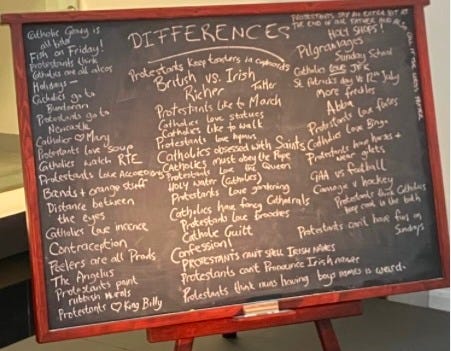 DIFFERENCES
Catholic Gravy is
all Bisto
Fish on Friday!
Protestants think
Catholics are all alcos
Holidays —
Catholics go to
Bundoran
Protestants go to
Newcastle
Catholics ♡ Mary
Protestants love soup
Catholics watch RTE
Protestants Love Accordions
Bands + orange stuff
Distance between
the eyes
Catholics Love incence
Contraception
Peelers are all Prods
The Angelus
Protestants paint
rubbish murals
Protestants ♡ King Billy
Protestants Keep toasters in cupboards
British vs. Irish
Richer
Taller
Protestants like to March
Catholics love statues
Catholics like to walk
Protestants love hymns
Catholics obsessed with Saints
Catholics must obey the Pope
Protestants Love the Queen
Holy water (Catholics)
Protestants Love gardening
Catholics have fancy Cathedrals
Protestants Love brooches
Catholic Guilt
Confession!
PROTESTANTS CAN'T SPELL IRISH NAMES
Protestants can't Pronounce Irish names
Protestants think nuns having boys names is weird.
PROTESTANTS SAY AN EXTRA BIT AT
THE END OF OUR FATHER AND ALSO
HOLY SHOPS!
Pilgrimages
Sunday School
Catholics Love JFK
St. Patricks day vs 12th July
More freckles
Abba
Protestants Love flutes
Catholics Love Bingo
Protestants have horses +
wear gilets
GAA vs football
Camogie v hockey
Protestants think Catholics
keep coal in the bath
Protestants can't have fun on
Sundays